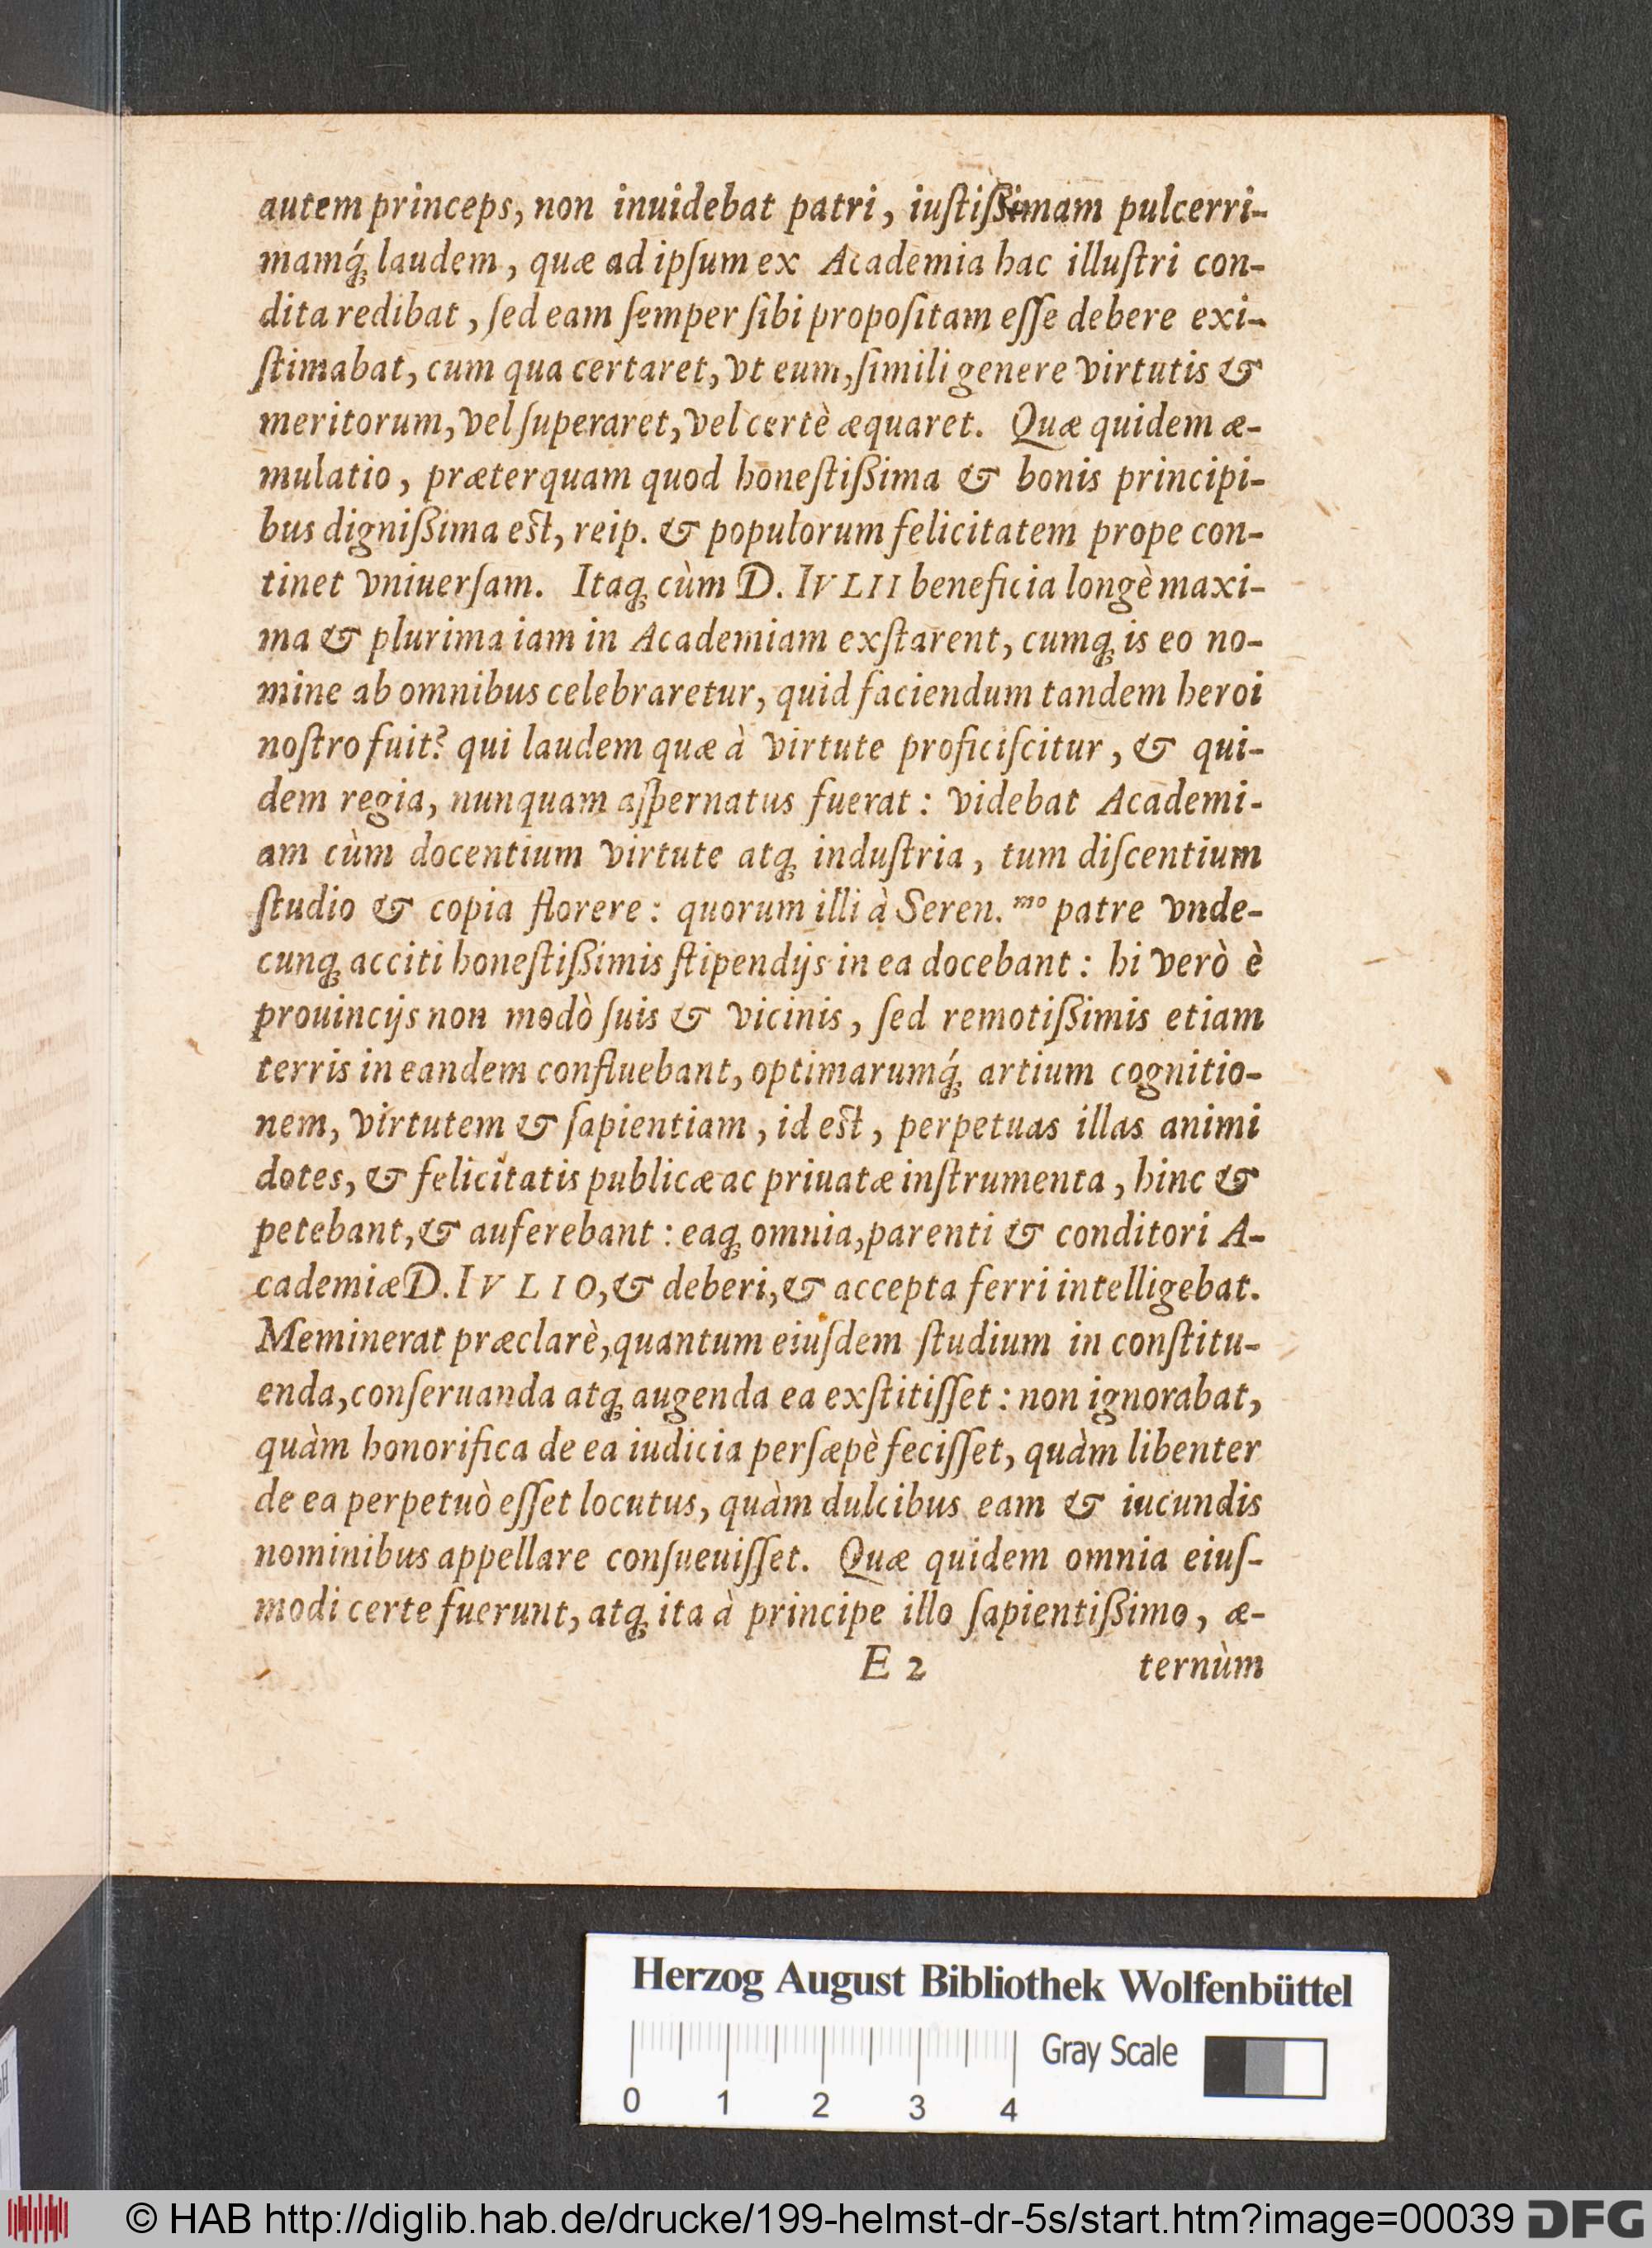 autem princeps, non inuidebat patri, iuſtiſsimam pulcerri-
mamq́; laudem, quæ ad ipſum ex Academia hac illuſtri con-
dita redibat, ſed eam ſemper ſibi propoſitam eſſe debere exi-
ſtimabat, cum qua certaret, vt eum, ſimili genere virtutis &
meritorum, vel ſuperaret, vel certè æquaret. Quæ quidem æ-
mulatio, præterquam quod honeſtißima & bonis principi-
bus digniſßima eſt, reip. & populorum felicitatem prope con-
tinet vniuerſam. Itaq; cùm D. IVLII beneficia longè maxi-
ma & plurima iam in Academiam exſtarent, cumq; is eo no-
mine ab omnibus celebraretur, quid faciendum tandem heroi
noſtro fuit? qui laudem quæ à virtute proficiſcitur, & qui-
dem regia, nunquam aſpernatus fuerat: videbat Academi-
am cùm docentium virtute atq; induſtria, tum diſcentium
ſtudio & copia florere: quorum illi à Seren.mo patre vnde-
cunq; acciti honeſtißimis ſtipendijs in ea docebant: hi verò è
prouincijs non modò ſuis & vicinis, ſed remotiſßimis etiam
terris in eandem confluebant, optimarumq́; artium cognitio-
nem, virtutem & ſapientiam, id eſt, perpetuas illas animi
dotes, & felicitatis publicæ ac priuatæ inſtrumenta, hinc &
petebant, & auferebant: eaq; omnia, parenti & conditori A-
cademiæ D. IVLIO, & deberi, & accepta ferri intelligebat.
Meminerat præclarè, quantum eiuſdem ſtudium in conſtitu-
enda, conſeruanda atq; augenda ea exſtitiſſet: non ignorabat,
quàm honorifica de ea iudicia perſæpè feciſſet, quàm libenter
de ea perpetuò eſſet locutus, quàm dulcibus eam & iucundis
nominibus appellare conſueuiſſet. Quæ quidem omnia eiuſ-
modi certe fuerunt, atq; ita à principe illo ſapientiſßimo, æ-
E 2 ternùm
Herzog August Bibliothek Wolfenbüttel
Gray Scale
0 1 2 3 4
© HAB http://diglib.hab.de/drucke/199-helmst-dr-5s/start.htm?image=00039 DFG